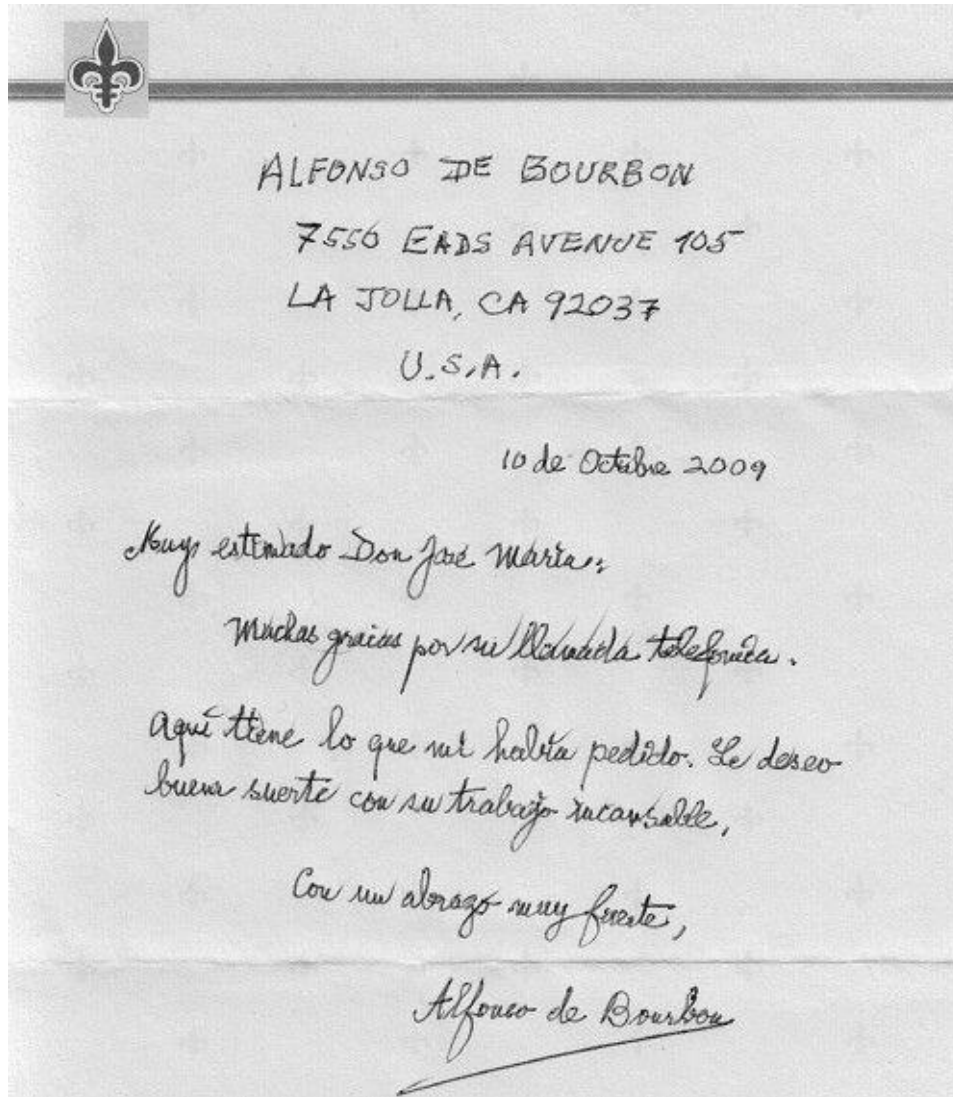 ALFONSO DE BOURBON
7556 EADS AVENUE 105
LA JOLLA, CA 92037
U.S.A.
10 de Octubre 2009
Muy estimado Don José María:
Muchas gracias por su llamada telefónica.
Aquí tiene lo que me había pedido. Le deseo
buena suerte con su trabajo incansable,
Con un abrazo muy fuerte,
Alfonso de Bourbon